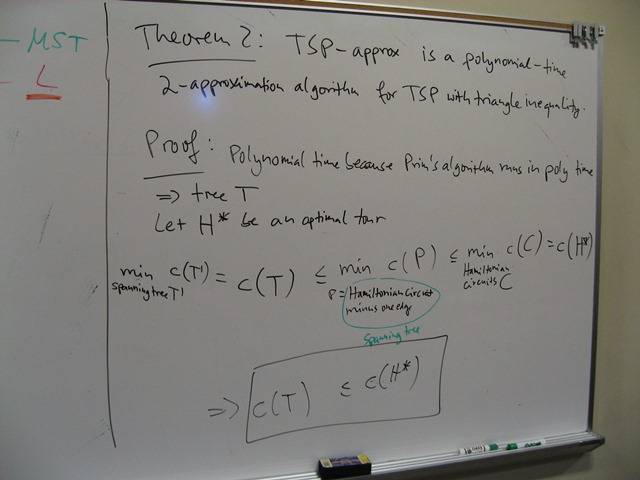 - MST
- L
Theorem 2: TSP-approx is a polynomial-time
2-approximation algorithm for TSP with triangle inequality.
Proof: Polynomial time because Prim's algorithm runs in poly time
=> tree T
Let H* be an optimal tour
min c(T') = c(T) ≤ min c(P) ≤ min c(C) = c(H*)
spanning tree T' P = Hamiltonian circuit Hamiltonian
minus one edge circuits C
spanning tree
=> c(T) ≤ c(H*)